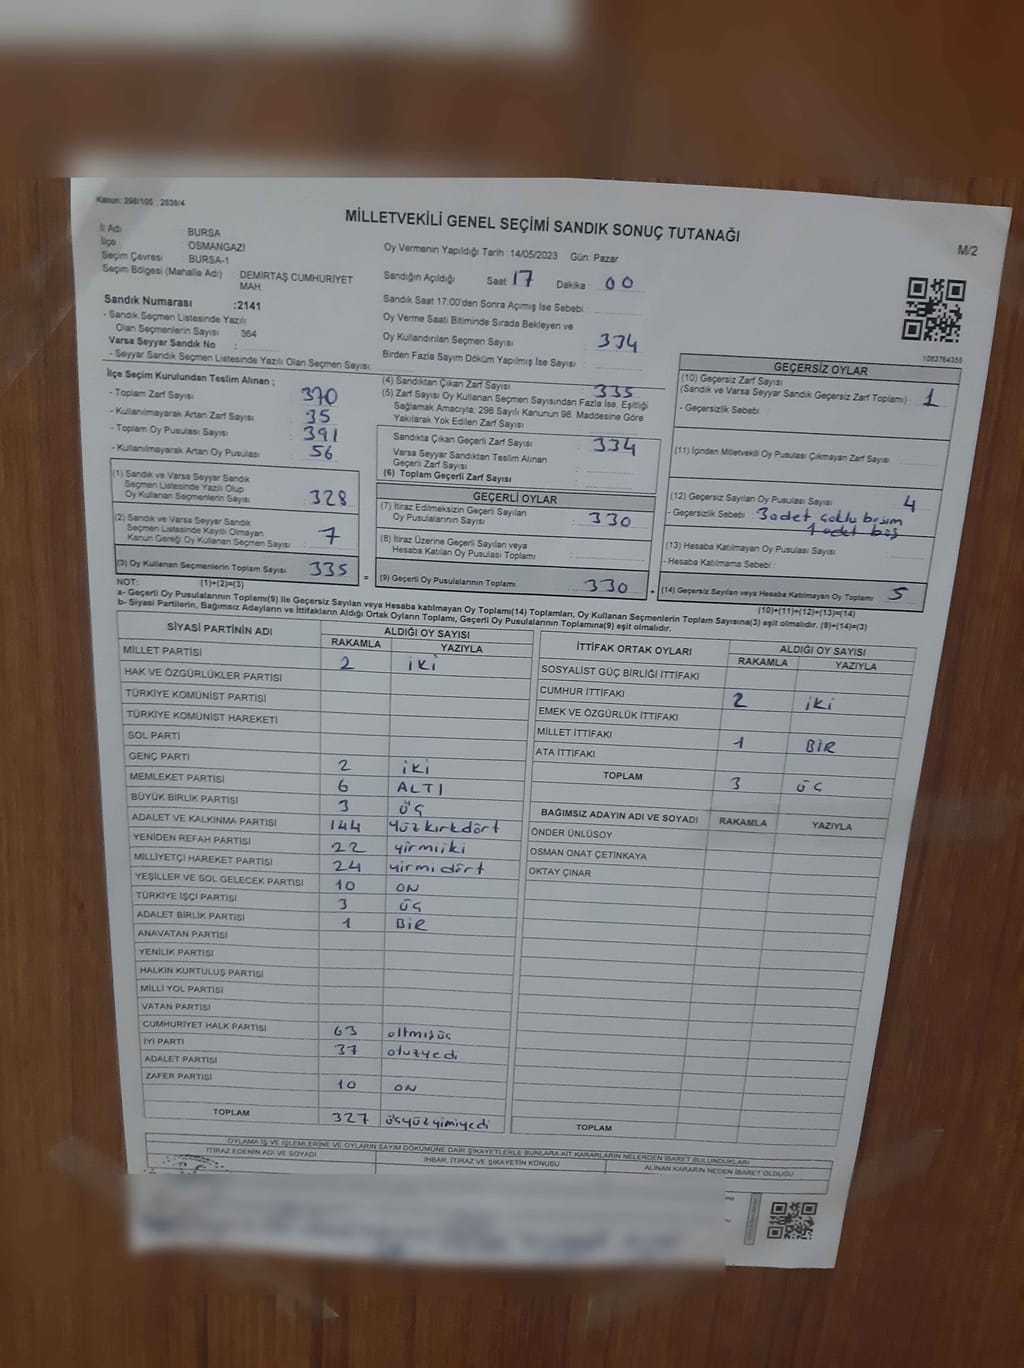 Kanun: 298/105 , 2839/4
MİLLETVEKİLİ GENEL SEÇİMİ SANDIK SONUÇ TUTANAĞI
M/2
İl Adı BURSA
İlçe OSMANGAZİ
Seçim Çevresi : BURSA-1
Seçim Bölgesi (Mahalle Adı) : DEMİRTAŞ CUMHURİYET
MAH.
Sandık Numarası :2141
- Sandık Seçmen Listesinde Yazılı
Olan Seçmenlerin Sayısı : 364
Varsa Seyyar Sandık No :
- Seyyar Sandık Seçmen Listesinde Yazılı Olan Seçmen Sayısı:
Oy Vermenin Yapıldığı Tarih :14/05/2023 Gün: Pazar
Sandığın Açıldığı Saat 17 Dakika : 00
Sandık Saat 17:00'den Sonra Açımış İse Sebebi :
Oy Verme Saati Bitiminde Sırada Bekleyen ve
Oy Kullandırılan Seçmen Sayısı : 334
Birden Fazla Sayım Döküm Yapılmış İse Sayısı :
1083764355
İlçe Seçim Kurulundan Teslim Alınan ;
- Toplam Zarf Sayısı : 370
- Kullanılmayarak Artan Zarf Sayısı : 35
- Toplam Oy Pusulası Sayısı : 391
- Kullanılmayarak Artan Oy Pusulası : 56
(1) Sandık ve Varsa Seyyar Sandık
Seçmen Listesinde Yazılı Olup
Oy Kullanan Seçmenlerin Sayısı : 328
(2) Sandık ve Varsa Seyyar Sandık
Seçmen Listesinde Kayıtlı Olmayan
Kanun Gereği Oy Kullanan Seçmen Sayısı : 7
(3) Oy Kullanan Seçmenlerin Toplam Sayısı : 335
(1)+(2)=(3)
(4) Sandıktan Çıkan Zarf Sayısı : 335
(5) Zarf Sayısı Oy Kullanan Seçmen Sayısından Fazla İse, Eşitliği
Sağlamak Amacıyla, 298 Sayılı Kanunun 98. Maddesine Göre
Yakılarak Yok Edilen Zarf Sayısı :
Sandıkta Çıkan Geçerli Zarf Sayısı : 334
Varsa Seyyar Sandıktan Teslim Alınan
Geçerli Zarf Sayısı :
(6) Toplam Geçerli Zarf Sayısı :
GEÇERLİ OYLAR
(7) İtiraz Edilmeksizin Geçerli Sayılan
Oy Pusulalarının Sayısı : 330
(8) İtiraz Üzerine Geçerli Sayılan veya
Hesaba Katılan Oy Pusulası Toplamı :
= (9) Geçerli Oy Pusulalarının Toplamı : 330 +
GEÇERSİZ OYLAR
(10) Geçersiz Zarf Sayısı
(Sandık ve Varsa Seyyar Sandık Geçersiz Zarf Toplamı) : 1
- Geçersizlik Sebebi :
(11) İçinden Milletvekili Oy Pusulası Çıkmayan Zarf Sayısı :
(12) Geçersiz Sayılan Oy Pusulası Sayısı : 4
- Geçersizlik Sebebi : 3 adet çoklu basım
1 adet boş
(13) Hesaba Katılmayan Oy Pusulası Sayısı :
- Hesaba Katılmama Sebebi :
(14) Geçersiz Sayılan veya Hesaba Katılmayan Oy Toplamı : 5
(10)+(11)+(12)+(13)=(14)
NOT:
a- Geçerli Oy Pusulalarının Toplamı(9) ile Geçersiz Sayılan veya Hesaba katılmayan Oy Toplamı(14) Toplamları, Oy Kullanan Seçmenlerin Toplam Sayısına(3) eşit olmalıdır. (9)+(14)=(3)
b- Siyasi Partilerin, Bağımsız Adayların ve İttifakların Aldığı Ortak Oyların Toplamı, Geçerli Oy Pusulalarının Toplamına(9) eşit olmalıdır.
SİYASİ PARTİNİN ADI ALDIĞI OY SAYISI
RAKAMLA YAZIYLA
MİLLET PARTİSİ 2 iKi
HAK VE ÖZGÜRLÜKLER PARTİSİ
TÜRKİYE KOMÜNİST PARTİSİ
TÜRKİYE KOMÜNİST HAREKETİ
SOL PARTİ
GENÇ PARTİ 2 iKi
MEMLEKET PARTİSİ 6 ALTI
BÜYÜK BİRLİK PARTİSİ 3 ÜÇ
ADALET VE KALKINMA PARTİSİ 144 Yüzkırkdört
YENİDEN REFAH PARTİSİ 22 yirmiiki
MİLLİYETÇİ HAREKET PARTİSİ 24 yirmidört
YEŞİLLER VE SOL GELECEK PARTİSİ 10 ON
TÜRKİYE İŞÇİ PARTİSİ 3 ÜÇ
ADALET BİRLİK PARTİSİ 1 BİR
ANAVATAN PARTİSİ
YENİLİK PARTİSİ
HALKIN KURTULUŞ PARTİSİ
MİLLİ YOL PARTİSİ
VATAN PARTİSİ
CUMHURİYET HALK PARTİSİ 63 altmışüç
İYİ PARTİ 37 otuzyedi
ADALET PARTİSİ
ZAFER PARTİSİ 10 ON
TOPLAM 327 üçyüzyimiyedi
İTTİFAK ORTAK OYLARI ALDIĞI OY SAYISI
RAKAMLA YAZIYLA
SOSYALİST GÜÇ BİRLİĞİ İTTİFAKI
CUMHUR İTTİFAKI 2 iKi
EMEK VE ÖZGÜRLÜK İTTİFAKI
MİLLET İTTİFAKI 1 BİR
ATA İTTİFAKI
TOPLAM 3 ÜÇ
BAĞIMSIZ ADAYIN ADI VE SOYADI RAKAMLA YAZIYLA
ÖNDER ÜNLÜSOY
OSMAN ONAT ÇETİNKAYA
OKTAY ÇINAR
TOPLAM
OYLAMA İŞ VE İŞLEMLERİNE VE OYLARIN SAYIM DÖKÜMÜNE DAİR ŞİKAYETLERLE BUNLARA AİT KARARLARIN NELERDEN İBARET BULUNDUKLARI
İTİRAZ EDENİN ADI VE SOYADI İHBAR, İTİRAZ VE ŞİKAYETİN KONUSU ALINAN KARARIN NEDEN İBARET OLDUĞU